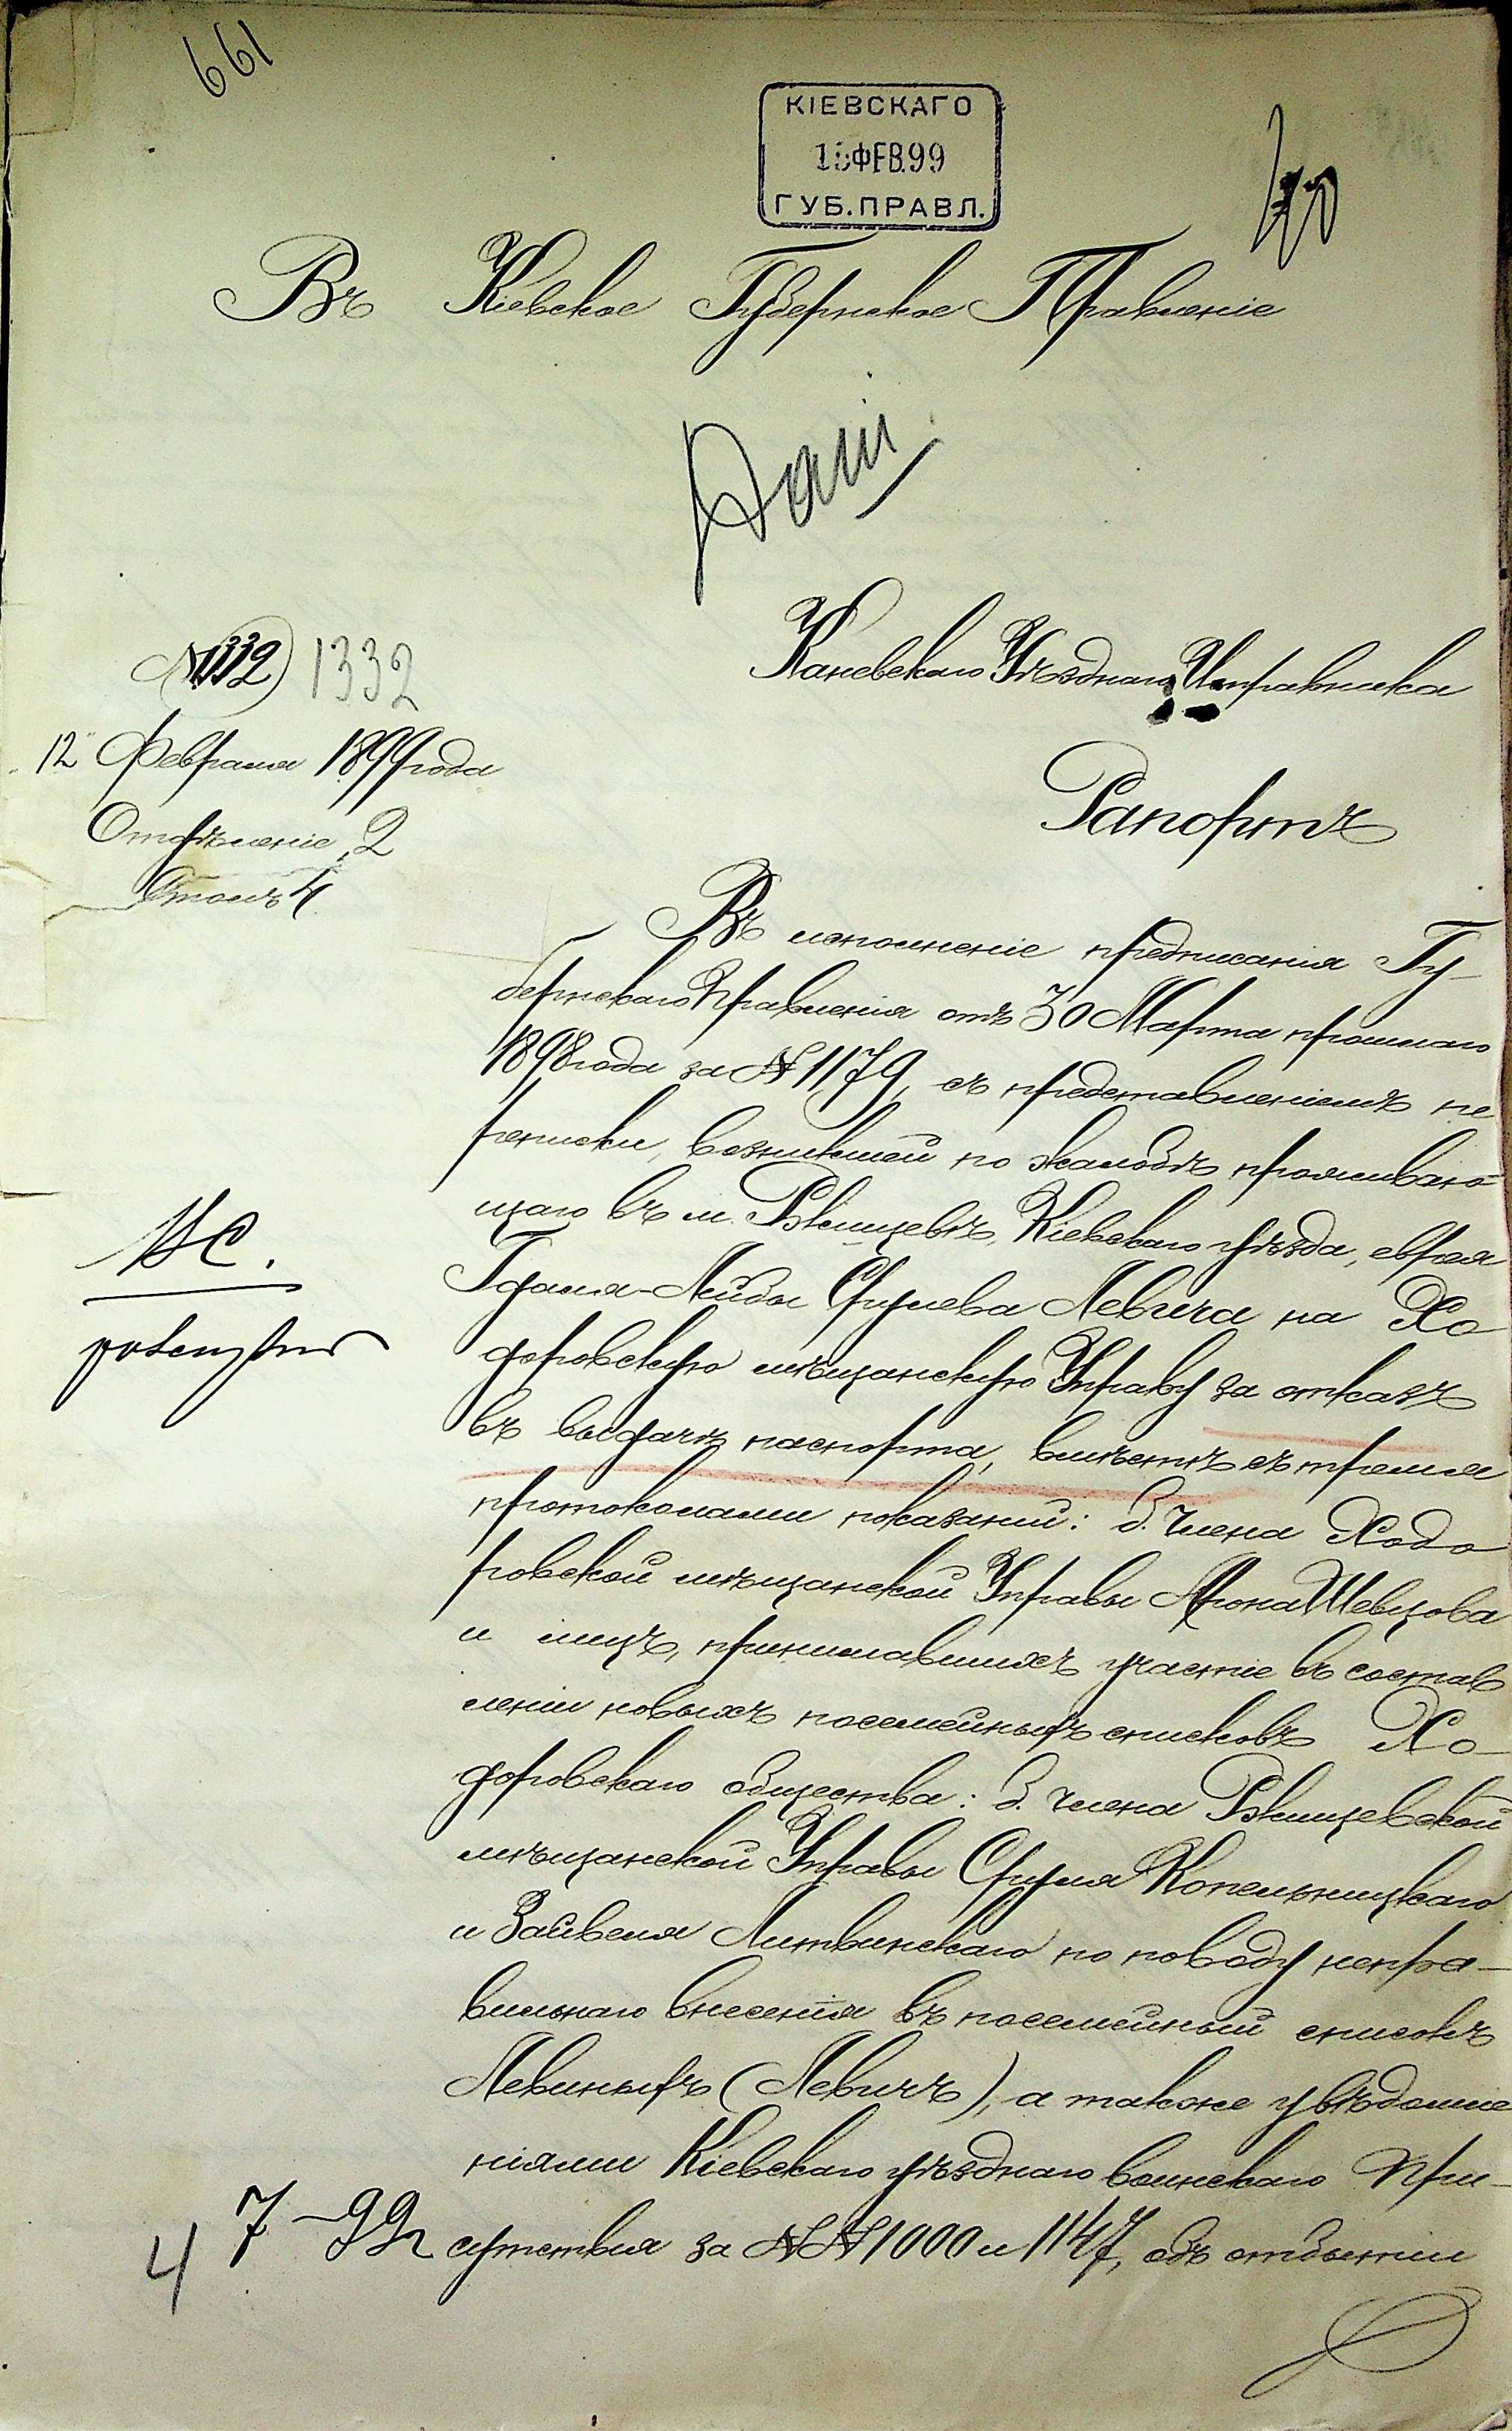 661
КІЕВСКАГО
15 ФЕВ.99
ГУБ.ПРАВЛ.
40
Въ Кіевское Губернское Правленіе
Каневскаго Уѣзднаго Исправника
№ 1332
1332
12 Февраля 1899 года
Отдѣленіе 2
Столъ 4
Рапортъ
Въ исполненіе предписанія Гу-
бернскаго Правленія отъ 30 Марта прошлаго
1898 года за № 1179, съ представленіемъ пе
реписки, возникшей по жалобѣ проживаю-
щаго въ м. Ржищевѣ, Кіевскаго уѣзда, еврея
Гдаля-Лейбы Срулева Левича на Хо
доровскую мѣщанскую Управу за отказъ
въ выдачѣ паспорта, вмѣстѣ съ тремя
протоколами показаній: б. Члена Ходо
ровской мѣщанской Управы Арона Шевцова
и лицъ, принимавшихъ участіе въ состав
леніи новыхъ посемейныхъ списковъ Хо-
доровскаго общества: б. члена Ржищевской
мѣщанской Управы Сруля Копельницкаго
и Зайвеля Литвинскаго по поводу непра-
вильнаго внесенія въ посемейный списокъ
Левиныхъ (Левичъ), а также увѣдомле
ніями Кіевскаго уѣзднаго воинскаго При-
сутствія за №№ 1000 и 1147, объ отбытіи
4 7-99 г